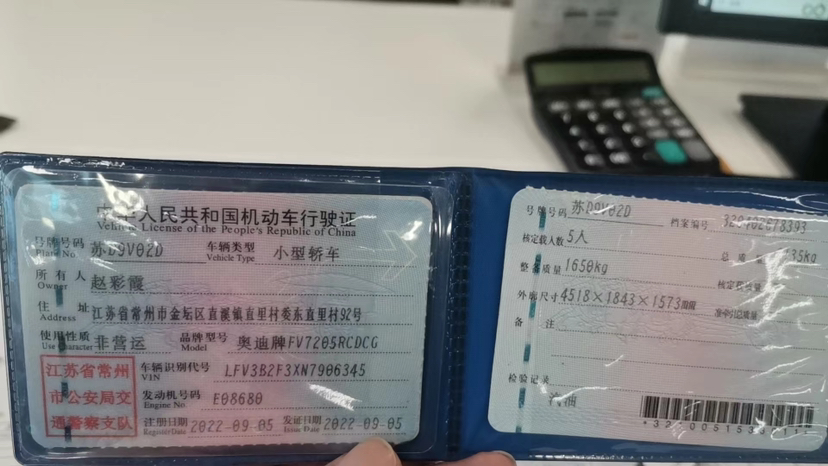 中华人民共和国机动车行驶证
Vehicle License of the People's Republic of China
号牌号码 苏D9V02D 车辆类型 小型轿车
Plate No. Vehicle Type
所有人 赵彩霞
Owner
住址 江苏省常州市金坛区直溪镇直里村委东直里村92号
Address
使用性质 非营运 品牌型号 奥迪牌FV7205RCDCG
Use Character Model
江苏省常州
市公安局交
通警察支队
车辆识别代号 LFV3B2F3XN7906345
VIN
发动机号码 E08680
Engine No.
注册日期 2022-09-05 发证日期 2022-09-05
Register Date Issue Date
号牌号码 苏D9V02D 档案编号
核定载人数 5人 总质量
整备质量 1650kg 核定载质量
外廓尺寸 4518×1843×1573mm 准牵引总质量
备注
检验记录
汽油